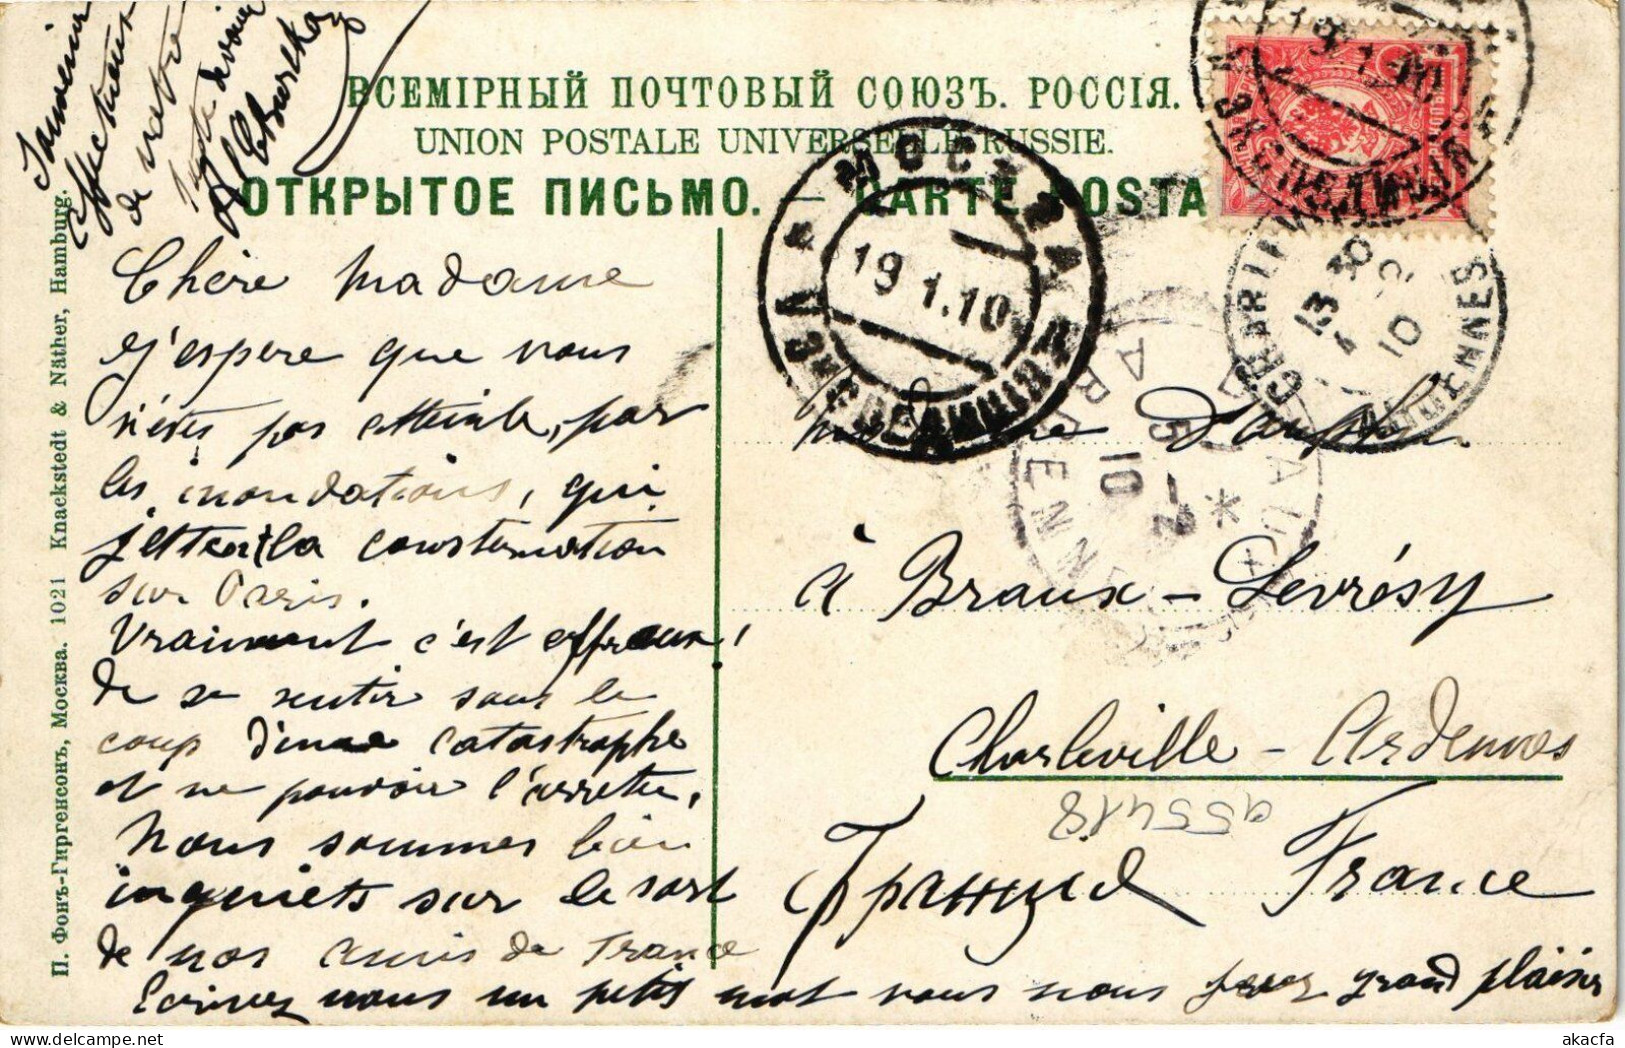 ВСЕМІРНЫЙ ПОЧТОВЫЙ СОЮЗЪ. РОССІЯ.
UNION POSTALE UNIVERSELLE RUSSIE.
ОТКРЫТОЕ ПИСЬМО. — CARTE POSTA
Souvenir
affectueux
de votre
A Chourka
МОСКВА
19 1.10
CHARLEVILLE
ARDENNES
13 30
10
ARDENNES
5 -2
10
Chère Madame
j'espere que vous
n'êtes pas atteinte, par
les inondations, qui
jettent la consternation
sur Paris.
Vraiment c'est affreux,
de se sentir sous le
coup d'une catastrophe
et ne pouvoir l'arreter,
Nous sommes bien
inquiets sur le sort
de nos amis de France
Ecrivez nous un petit mot vous nous ferez grand plaisir
à Braux - Levrésy
Charleville - Ardennes
955418
Франція France
П. Фонъ-Гиргенсонъ, Москва. 1021 Knackstedt & Näther, Hamburg.
akacfa